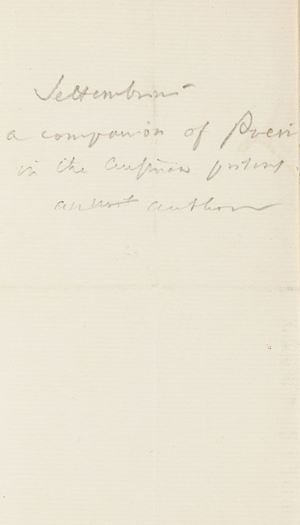 Settembrini
a companion of Poeri
in the Austrian prisons.
author